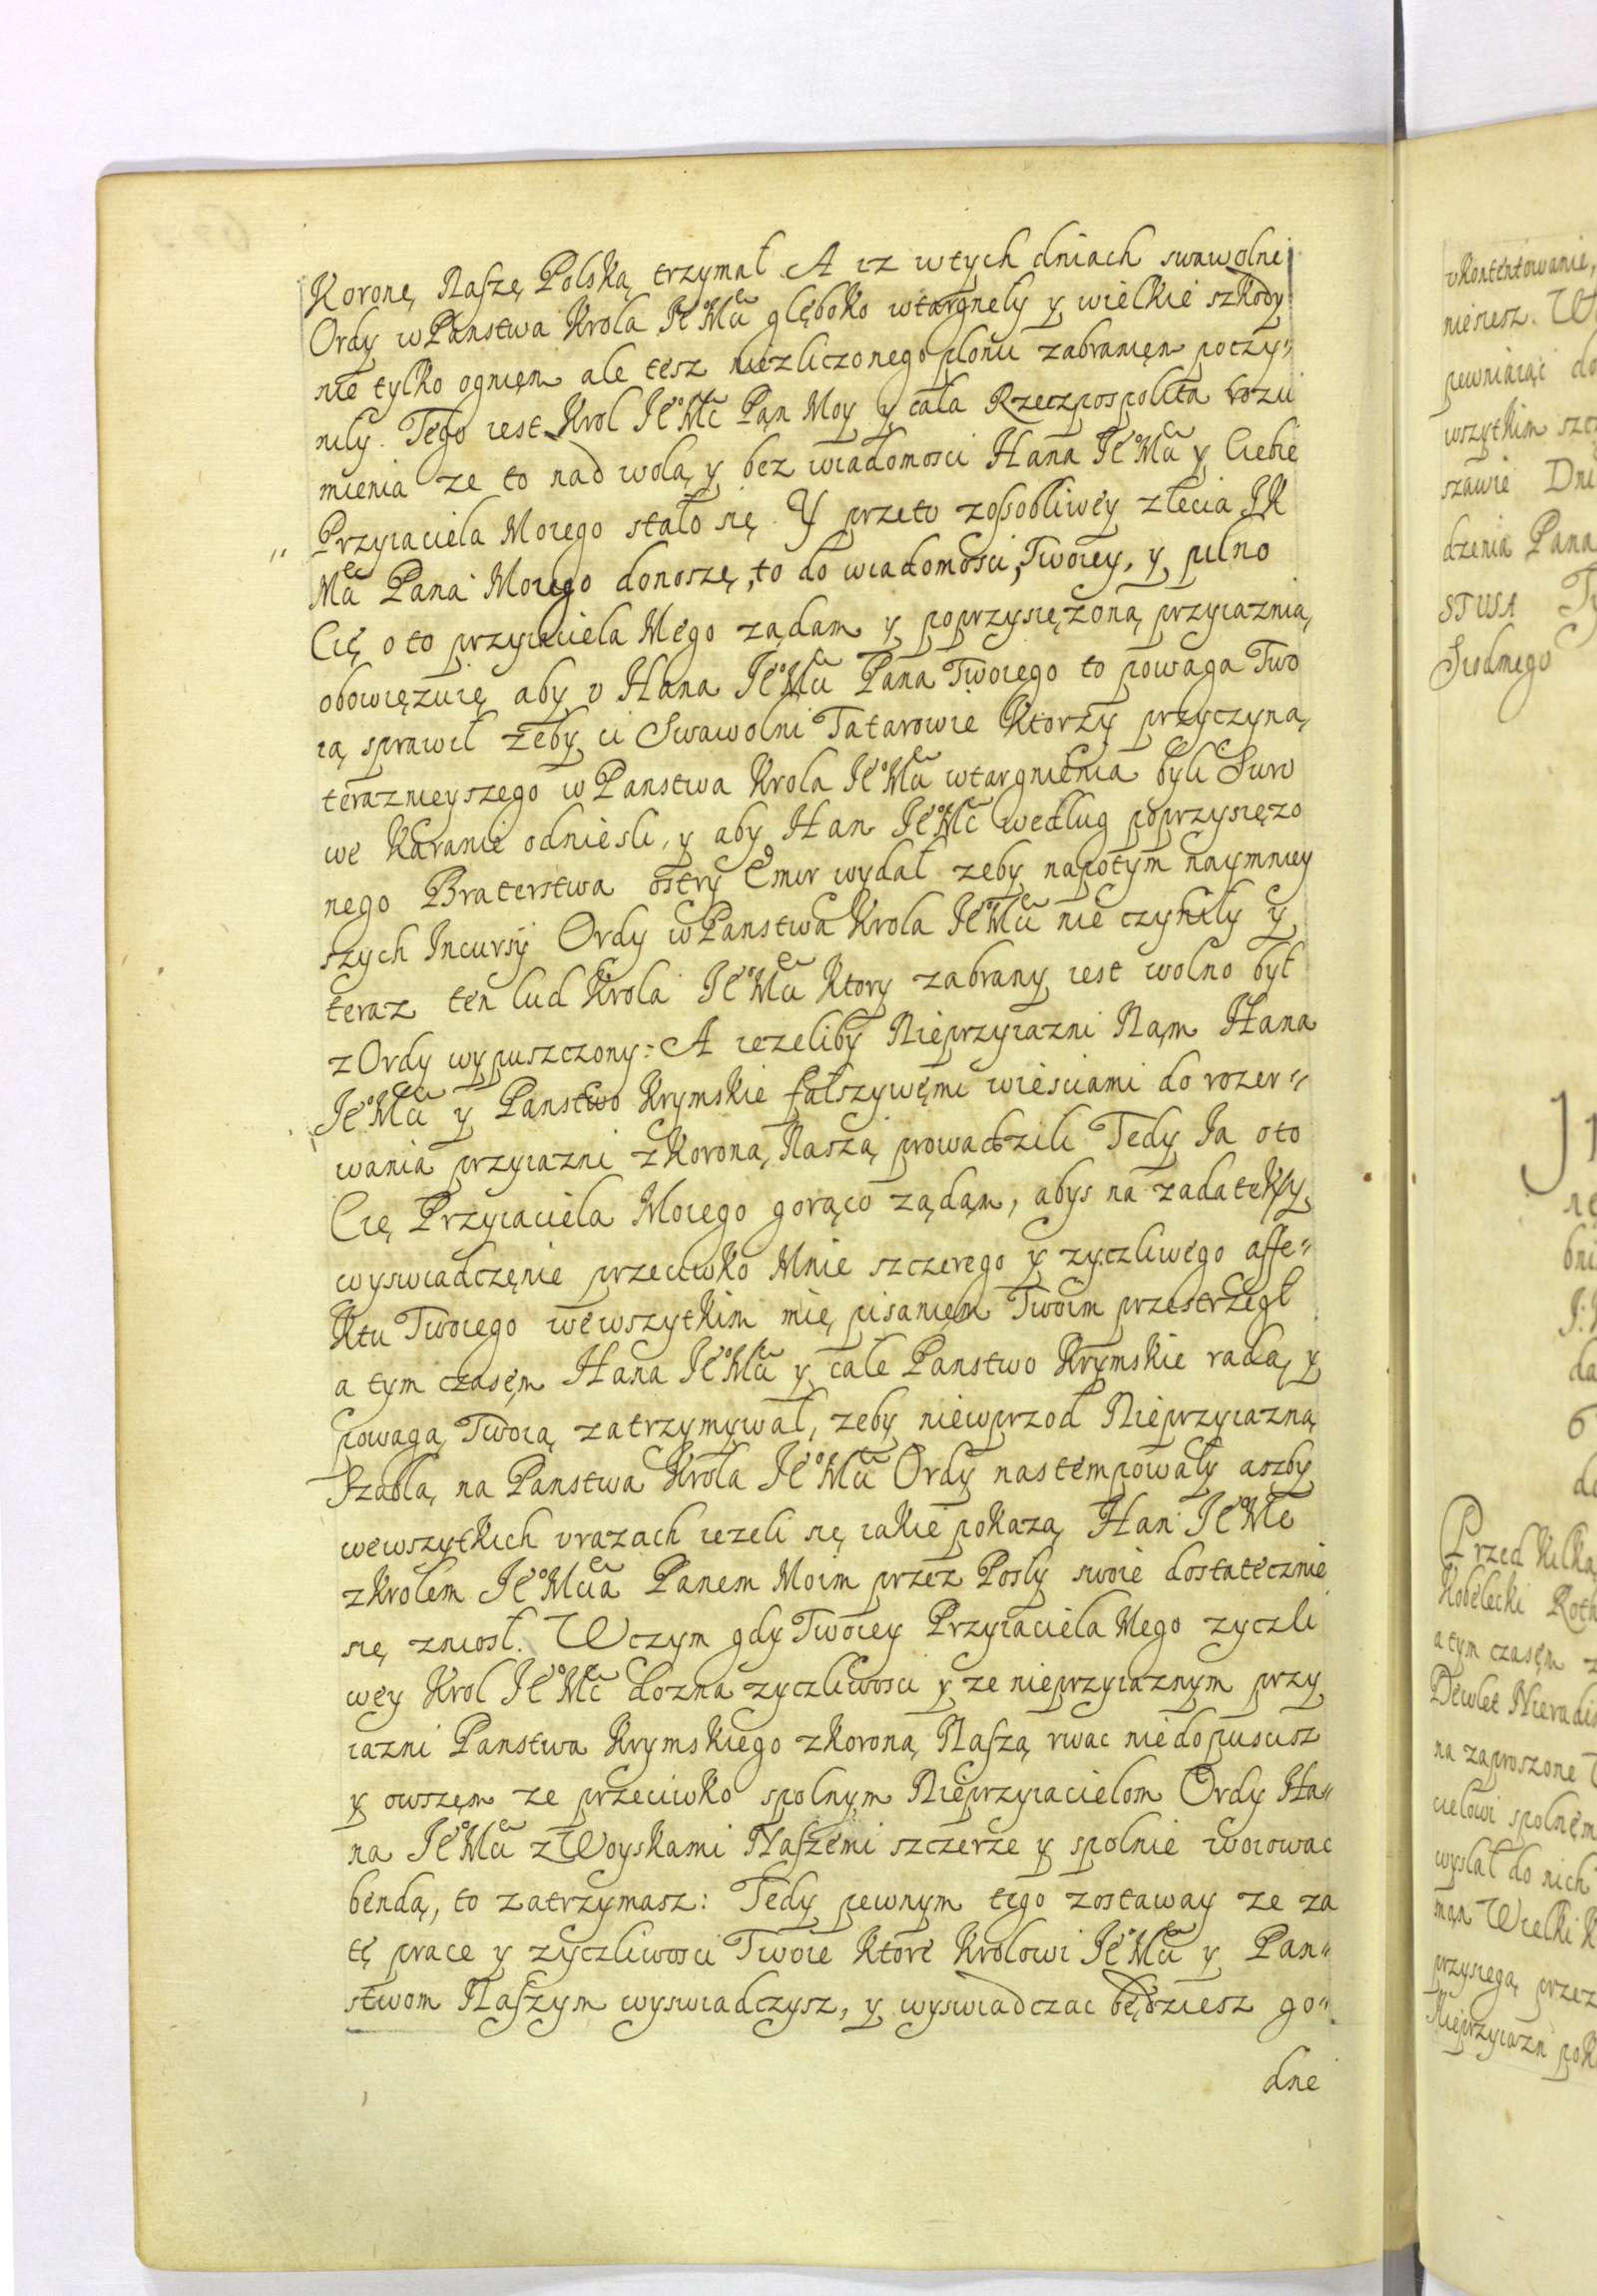 Koronę Naszę Polską trzymał A iz wtych dniach swawolne
Ordy w Panstwa Krola Je͠o Mci głęboko wtargnęly y wielkie szkody
nie tylko ognięm ale tesz niezliczonego plonu zabranięm poczy"
nily. Tego iest Krol Je͠o Mć Pąn Moy y cała Rzeczpospolita rozu
mienia ze to nad wolą y bez wiadomosci Hana Je͠o Mci y Ciebie
" Przyiaciela Moiego stało się. Y przeto zosobliwey zlecia JK
Mci Pana Moiego donoszę to do wiadomosci Twoiey, y pilno
Cię o to przyiaciela Mego ządam y poprzysięzoną przyiaznią
obowięzuię aby v Hana Je͠o Mci Pana Twoiego to powaga Two
ią sprawił zeby ci Swawolni Tatarowie Ktorzy przyczyną
teraznieyszego w Panstwa Krola Je͠o Mci wtargnienia byli Suro
we Karanie odniesli, y aby Han Je͠o Mć według poprzysięzo
nego Braterstwa ostry Emir wydał zeby napotym naymniey
szych Incursÿ Ordy w Panstwa Krola Je͠o Mci nie czyniły y
teraz ten lud Krola Je͠o Mci Ktory zabrany iest wolno był
z Ordy wypuszczony: A iezeliby Nieprzyiazni Nąm Hana
Je͠o Mci y Panstwo Krymskie fałszywęmi wiesciami do rozer"
wania przyiazni z Koroną Naszą prowadzili Tedy Ja oto
Cię Przyiaciela Moiego gorąco ządąm, abys na zadatek y
wyswiadczęnie przeciwko Mnie szczerego y zyczliwego affe"
Ktu Twoiego wewszytkim mię pisanięm Twoim przestrzegł
a tym czasęm Hana Je͠o Mci y całe Panstwo Krymskie radą y
powagą Twoią zatrzymywał, zeby niewprzod Nieprzyiazną
Szablą na Panstwa Krola Je͠o Mci Ordy nastempowały aszby
wewszytkich vrazach iezeli się iakie pokazą Han Je͠o Mć
z Krolem Je͠o Mcia Panem Moim przez Posly swoie dostatecznie
się zniosł. Wczym gdy Twoiey Przyiaciela Mego zyczli
wey Krol Je͠o Mć dozna zyczliwosci y ze nieprzyiaznym przy
iazni Panstwa Krymskiego z Koroną Naszą rwac niedopuscisz
y owszęm ze przeciwko spolnym Nieprzyiacielom Ordy Ha"
na Je͠o Mci z Woyskami Naszemi szczerze y spolnie woiowac
bendą, to zatrzymasz: Tedy pewnym tego zostaway ze za
tę prace y zyczliwosci Twoie Ktore Krolowi Je͠o Mci y Pan"
stwom Naszym wyswiadczysz, y wyswiadczac będziesz go"
dne
vkontentowanie,
niesiesz. W
pewniaiąc do
wszytkim szcz
szawie Dni
dzenia Pana
STUSA Ty
Siodmego
Przed kilką
Kobelecki Rot
a tym czasęm z
Dewlet Nieradi
na zaproszone
cielowi spolnem
wyslał do nich
mąn Wielki K
przysiegą przez
Nieprzyiazn pok